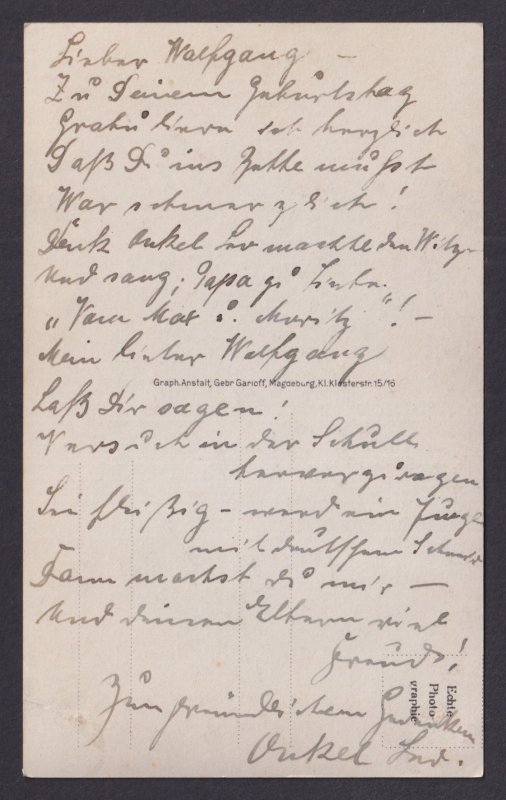 Lieber Wolfgang –
Zu Deinem Geburtstag
Gratuliere ich herzlich
Daß Du ins Bette mußt
War schmerzlich!
Denk Onkel machte den Witz
Und sang; Papa zu Liebe
„Vom Max u. Moritz"! –
Mein lieber Wolfgang
Graph. Anstalt, Gebr Garloff, Magdeburg, Kl. Klosterstr. 15/16
Laß Dir sagen!
Versuch in der Schule
hervorzuragen
Sei fleißig – werd ein Junge
mit deutschem
Dann machst du mir –
Und deinen Eltern viel
Freude!
Zum freundlichen Gedenken
Onkel
Echte
Photo-
graphie